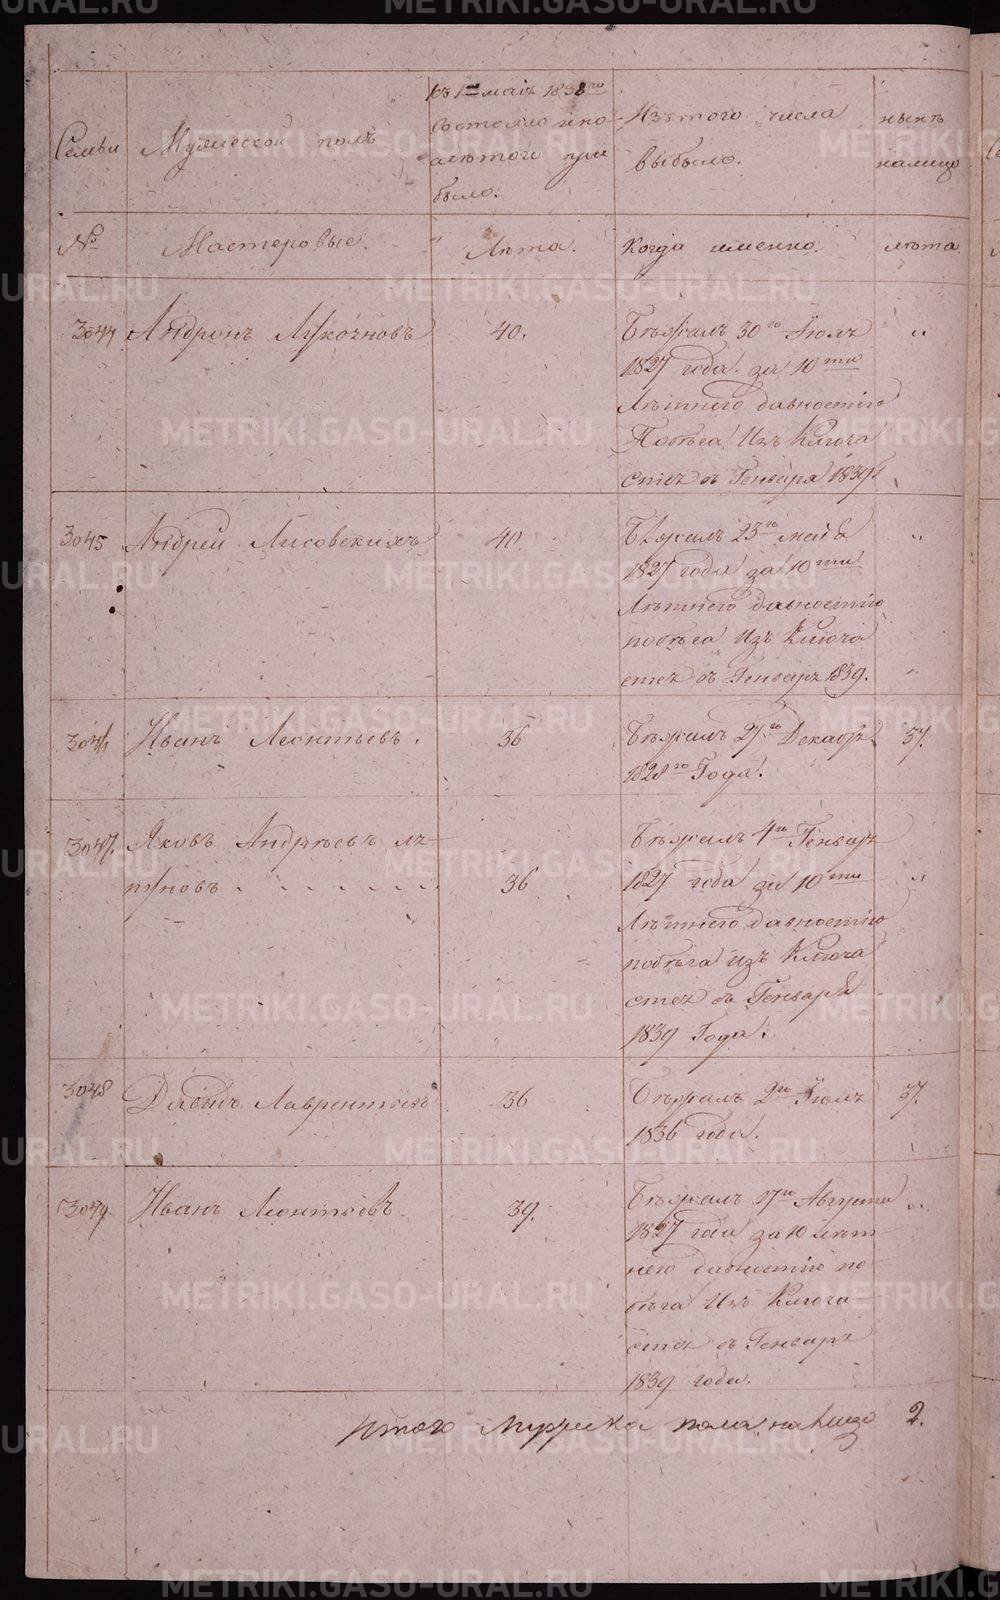 Семьи
Мужеской полъ
Къ 1му маія 1838го
состояло и по
слѣ того при
было.
Изъ того числа
выбыло.
нынѣ
налицо
№
Мастеровые.
Лѣта.
Когда именно.
лѣта.
3044
Андронъ Лукочновъ
40.
Бѣжалъ 30го Іюля
1827 года. за 10ти
Лѣтнего давностію
Побѣга Изъ Ключа
стеѣ въ Генваря 1839
"
3045
Андрей Лисовскихъ
40
Бѣжалъ 23го маія
1827 года за 10ти
Лѣтнего давностію
побѣга Изъ Ключа
стеѣ въ Генварѣ 1839.
"
3046
Иванъ Леонтьевъ.
36
Бѣжалъ 27го Декабря
1828го Года.
37.
3047.
Яковъ Андрѣевъ Лѣ
туновъ
36
Бѣжалъ 4го Генваря
1827 года за 10ти
Лѣтнего давностію
побѣга изъ Ключа
стеѣ въ Генварѣ
1839 Года.
"
3048
Давыдъ Лаврентьевъ
36
Бѣжалъ 2го Іюля
1836 года.
37.
3049
Иванъ Леонтьевъ.
39.
Бѣжалъ 17го Августа
1827 года за 10 лѣт
него давностію по
бѣга Изъ Ключа
стеѣ въ Генварѣ
1839 года.
"
Итого Мужеска пола налицо 2.
METRIKI.GASO-URAL.RU